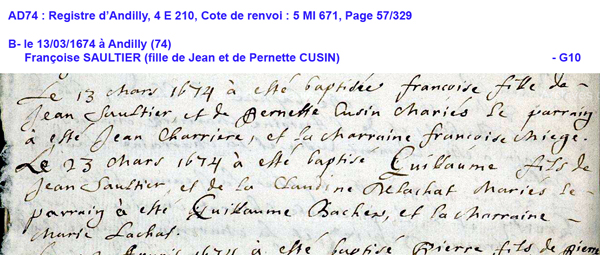 AD74 : Registre d'Andilly, 4 E 210, Cote de renvoi : 5 MI 671, Page 57/329
B- le 13/03/1674 à Andilly (74)
Françoise SAULTIER (fille de Jean et de Pernette CUSIN) - G10
Le 13 Mars 1674 à esté baptisée francoise fille de
Jean Saultier et de Pernette Cusin Mariés Le parrain
à esté Jean Charriere, et la Marraine francoise Chiege.
Le 23 Mars 1674 à esté baptisé Guillaume fils de
Jean Saultier, et de la Claudine Delachat Mariés Le
parrain à esté Guillaume Rachex, et la Marraine
Marie Lachat.
1674 à esté baptisé Pierre fils de